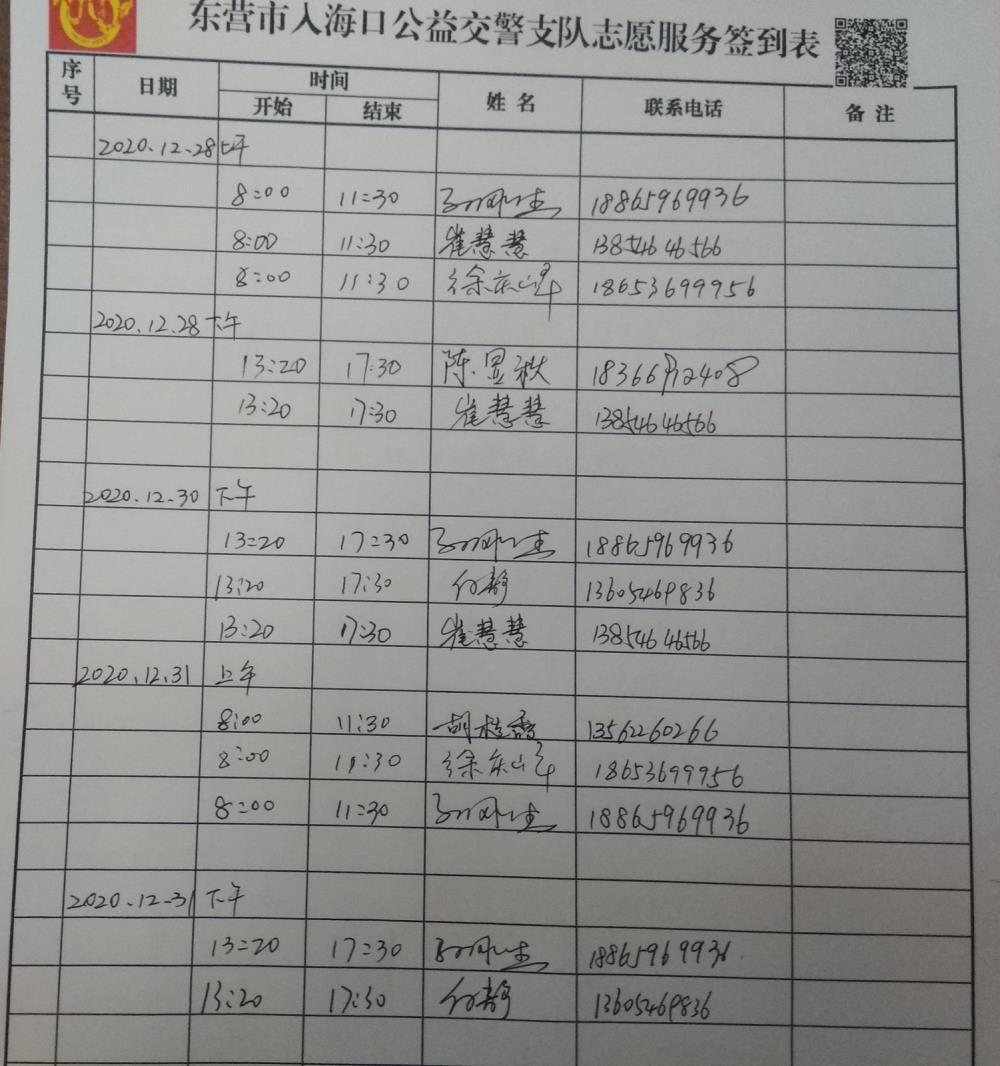 东营市入海口公益交警支队志愿服务签到表
序号 日期 时间 姓名 联系电话 备注
开始 结束
2020.12.28 上午
8:00 11:30 18865969936
8:00 11:30 崔慧慧 13854646566
8:00 11:30 18653699956
2020.12.28 下午
13:20 17:30 陈昱秋
13:20 17:30 崔慧慧 13854646566
2020.12.30 下午
13:20 17:30 18865969936
13:20 17:30 付静 13605469836
13:20 17:30 崔慧慧 13854646566
2020.12.31 上午
8:00 11:30 胡桂香 13562260266
8:00 11:30 18653699956
8:00 11:30 18865969936
2020.12.31 下午
13:20 17:30 18865969936
13:20 17:30 付静 13605469836